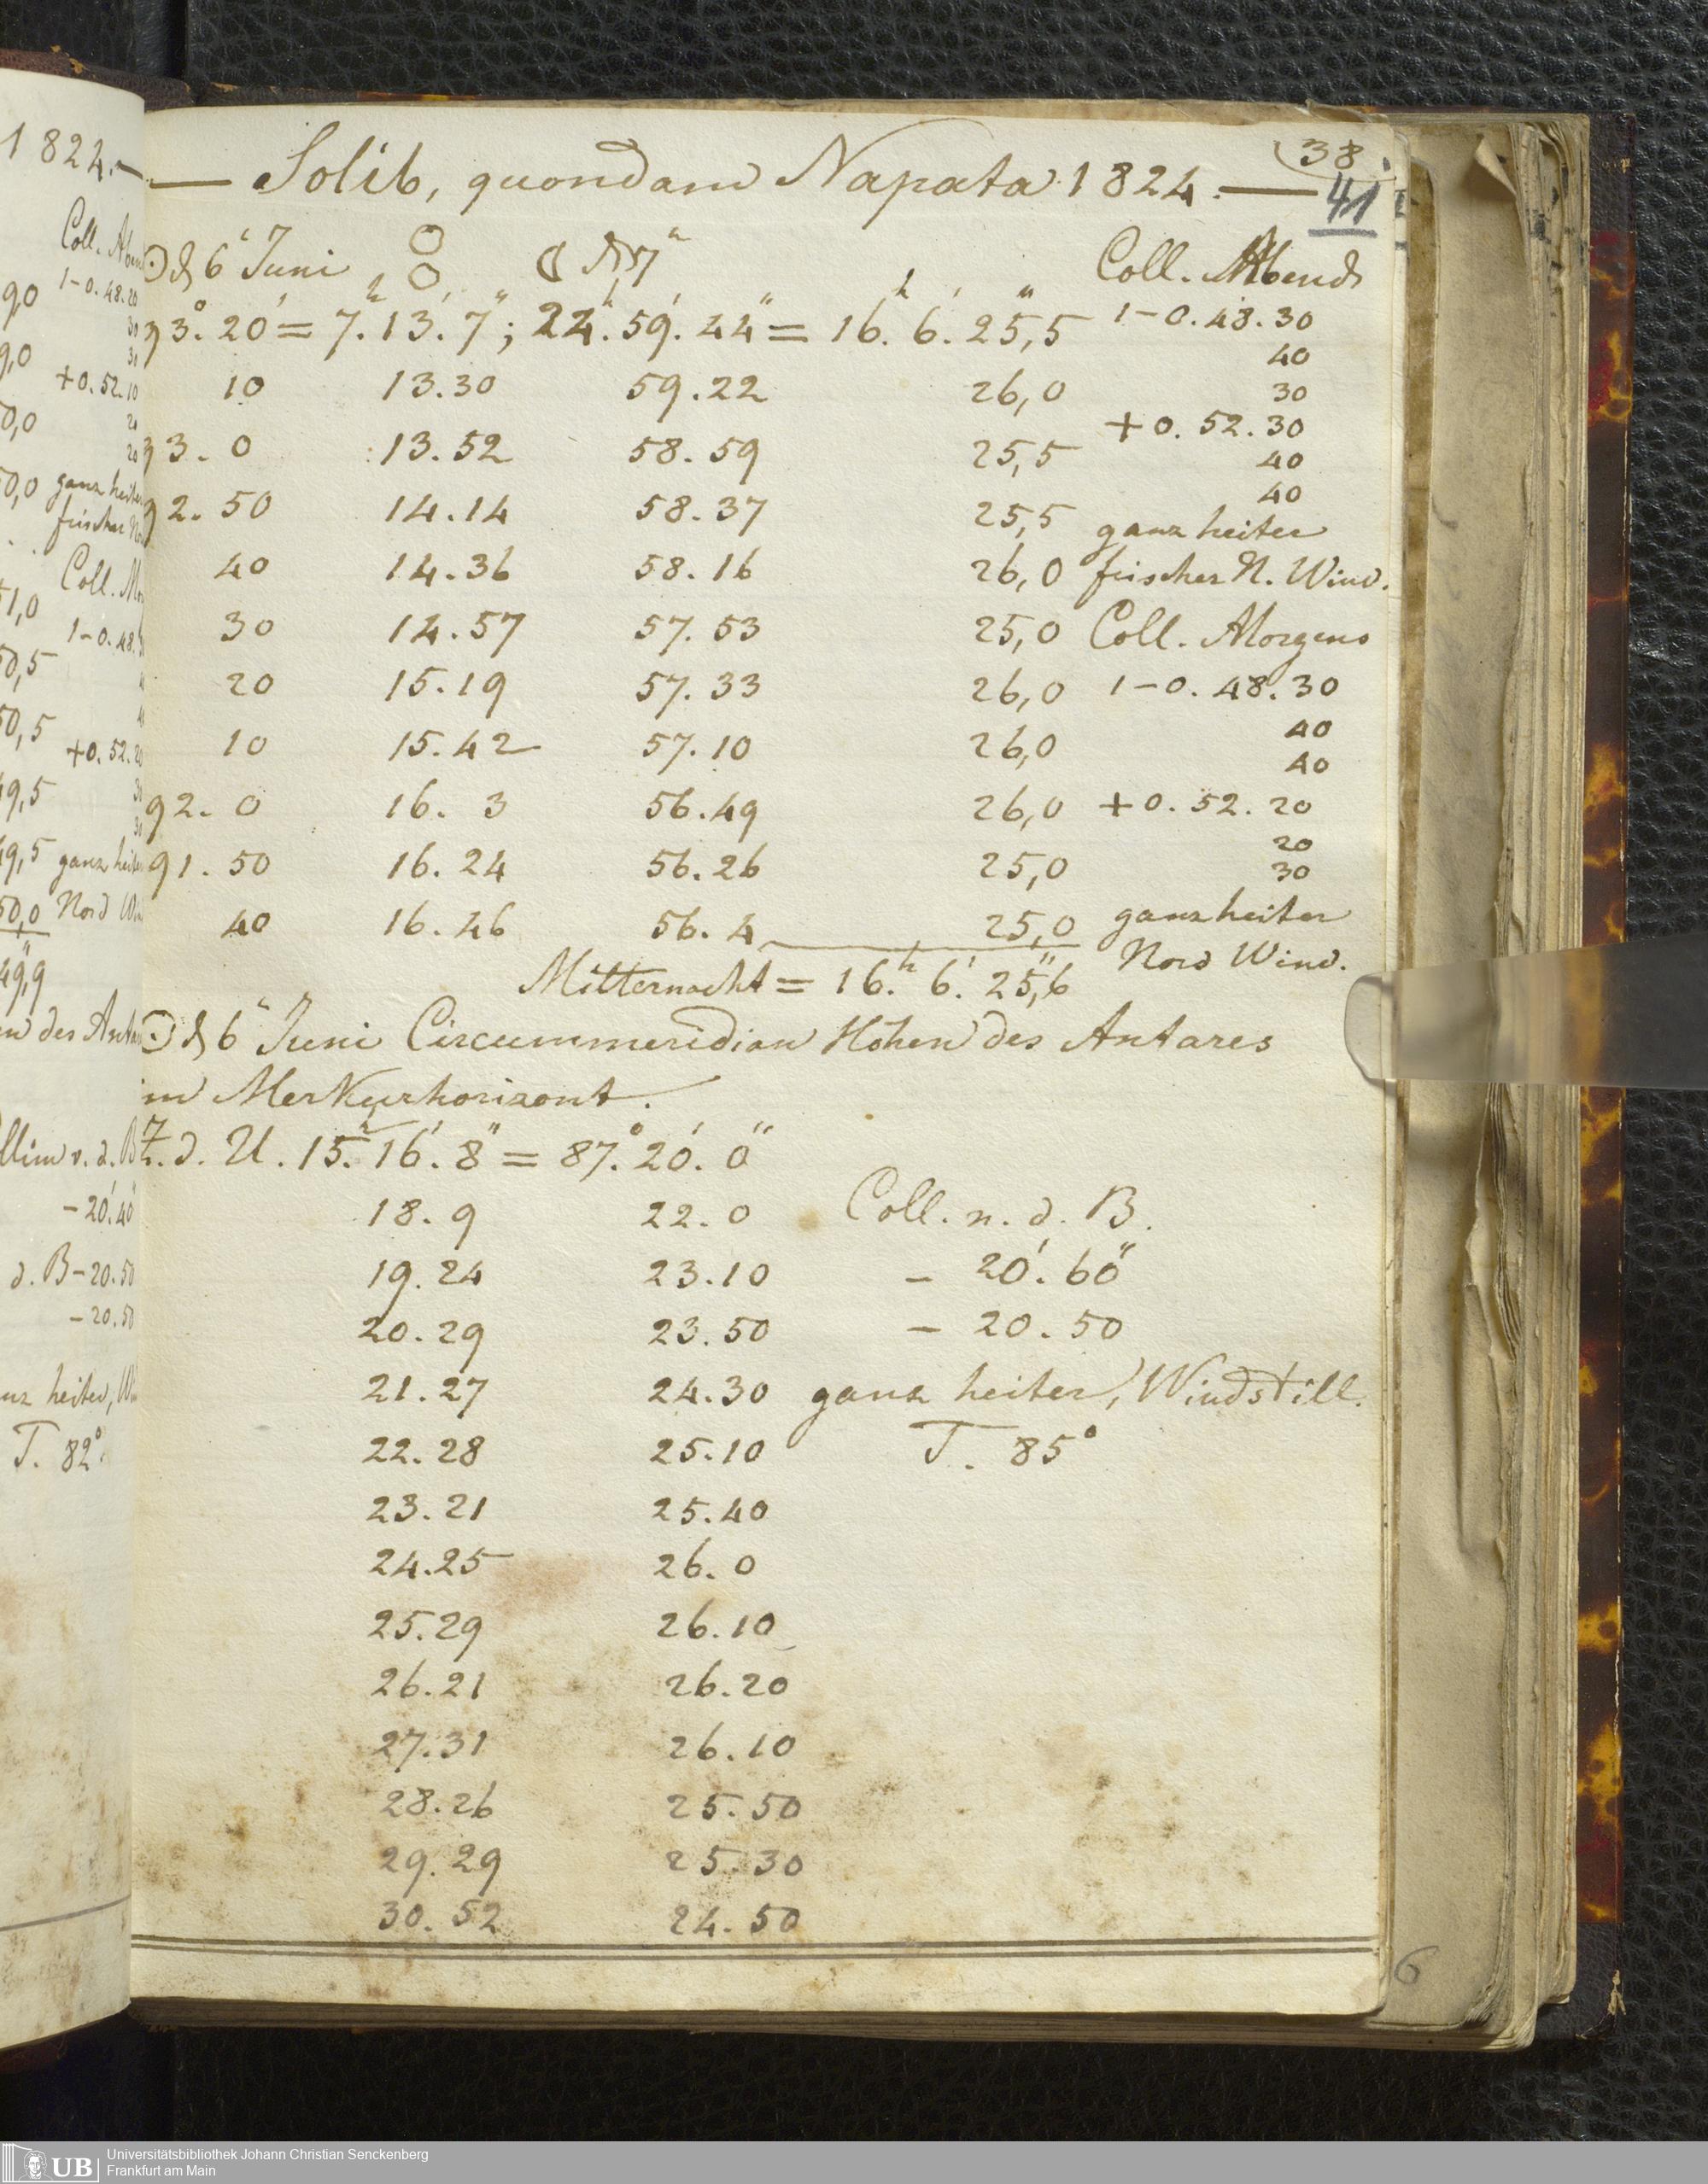 38
— Solib, quondam Napata 1824. —
41
☉ d 6ᵗ Juni ☾ d 7ᵗ Coll. Abends
93°. 20' = 7ʰ. 13'. 7"; 22ʰ. 59'. 44" = 16ʰ. 6'. 25,"5 1-0. 48. 30
40
10 13. 30 59. 22 26,0 30
+0. 52. 30
93. 0 13. 52 58. 59 25,5 40
40
92. 50 14. 14 58. 37 25,5 ganz heiter
40 14. 36 58. 16 26,0 frischer N. Wind.
30 14. 57 57. 53 25,0 Coll. Morgens
20 15. 19 57. 33 26,0 1-0. 48. 30
40
10 15. 42 57. 10 26,0 40
92. 0 16. 3 56. 49 26,0 +0. 52. 20
20
91. 50 16. 24 56. 26 25,0 30
40 16. 46 56. 4 25,0 ganz heiter
Nord Wind.
Mitternacht = 16ʰ. 6'. 25,"6
☉ d 6ᵗ Juni Circummeridian Höhen des Antares
im Merkurhorizont.
Z. d. U. 15ʰ. 16'. 8" = 87°. 20'. 0"
18. 9 22. 0 Coll. n. d. B.
19. 24 23. 10 - 20'. 60"
20. 29 23. 50 - 20. 50
21. 27 24. 30 ganz heiter, Windstill.
22. 28 25. 10 T. 85°
23. 21 25. 40
24. 25 26. 0
25. 29 26. 10
26. 21 26. 20
27. 31 26. 10
28. 26 25. 50
29. 29 25. 30
30. 52 24. 50
6
1824. —
Coll.
1-0. 48. 20
+0. 52. 10
ganz
Coll.
1-0. 48.
+0. 52. 20
49,5
49,5 ganz
50,0 Nord
49,"9
v. d. B
- 20'. 40"
d. B - 20. 50
- 20. 50
T. 82°
UB Universitätsbibliothek Johann Christian Senckenberg
Frankfurt am Main